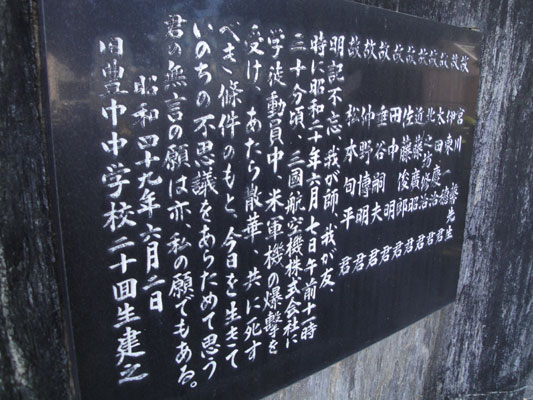 故 宮川 馨先生
故 伊東 一穂君
故 太田 慶治君
故 北之坊 修治君
故 近藤 廣昭君
故 佐藤 俊郎君
故 田中 明君
故 垂谷 嗣夫君
故 仲野 博明君
故 松本 旬平君
明記不忘、我が師、我が友、
時に昭和二十年六月七日午前十一時
三十分頃、三國航空機株式会社に
学徒動員中、米軍機の爆撃を
受け、あたら散華、共に死す
べき條件のもと、今日を生きて
いのちの不思議をあらためて思う
君の無言の願は亦、私の願でもある。
昭和四十九年六月二日
旧豊中中学校二十回生建之